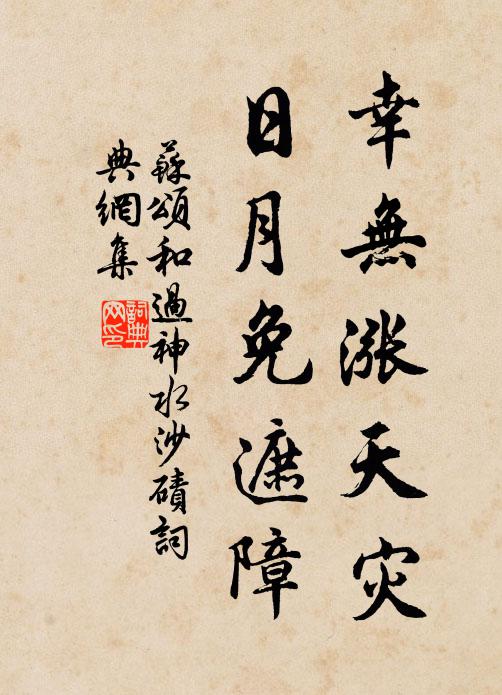 幸無漲天灾
日月免遮障
蘇頌和過神水沙磧詞
典網集
詞典网印